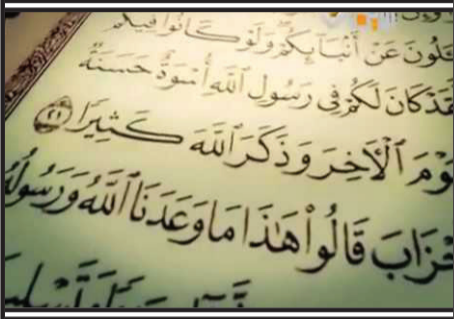 عَنْ أَنۢبَآئِكُمْ وَلَوْ كَانُوا۟ فِيكُم
لَكُمْ فِى رَسُولِ ٱللَّهِ أُسْوَةٌ حَسَنَةٌ
ٱلْـَٔاخِرَ وَذَكَرَ ٱللَّهَ كَثِيرًا ٢١
قَالُوا۟ هَٰذَا مَا وَعَدَنَا ٱللَّهُ وَرَسُولُهُ